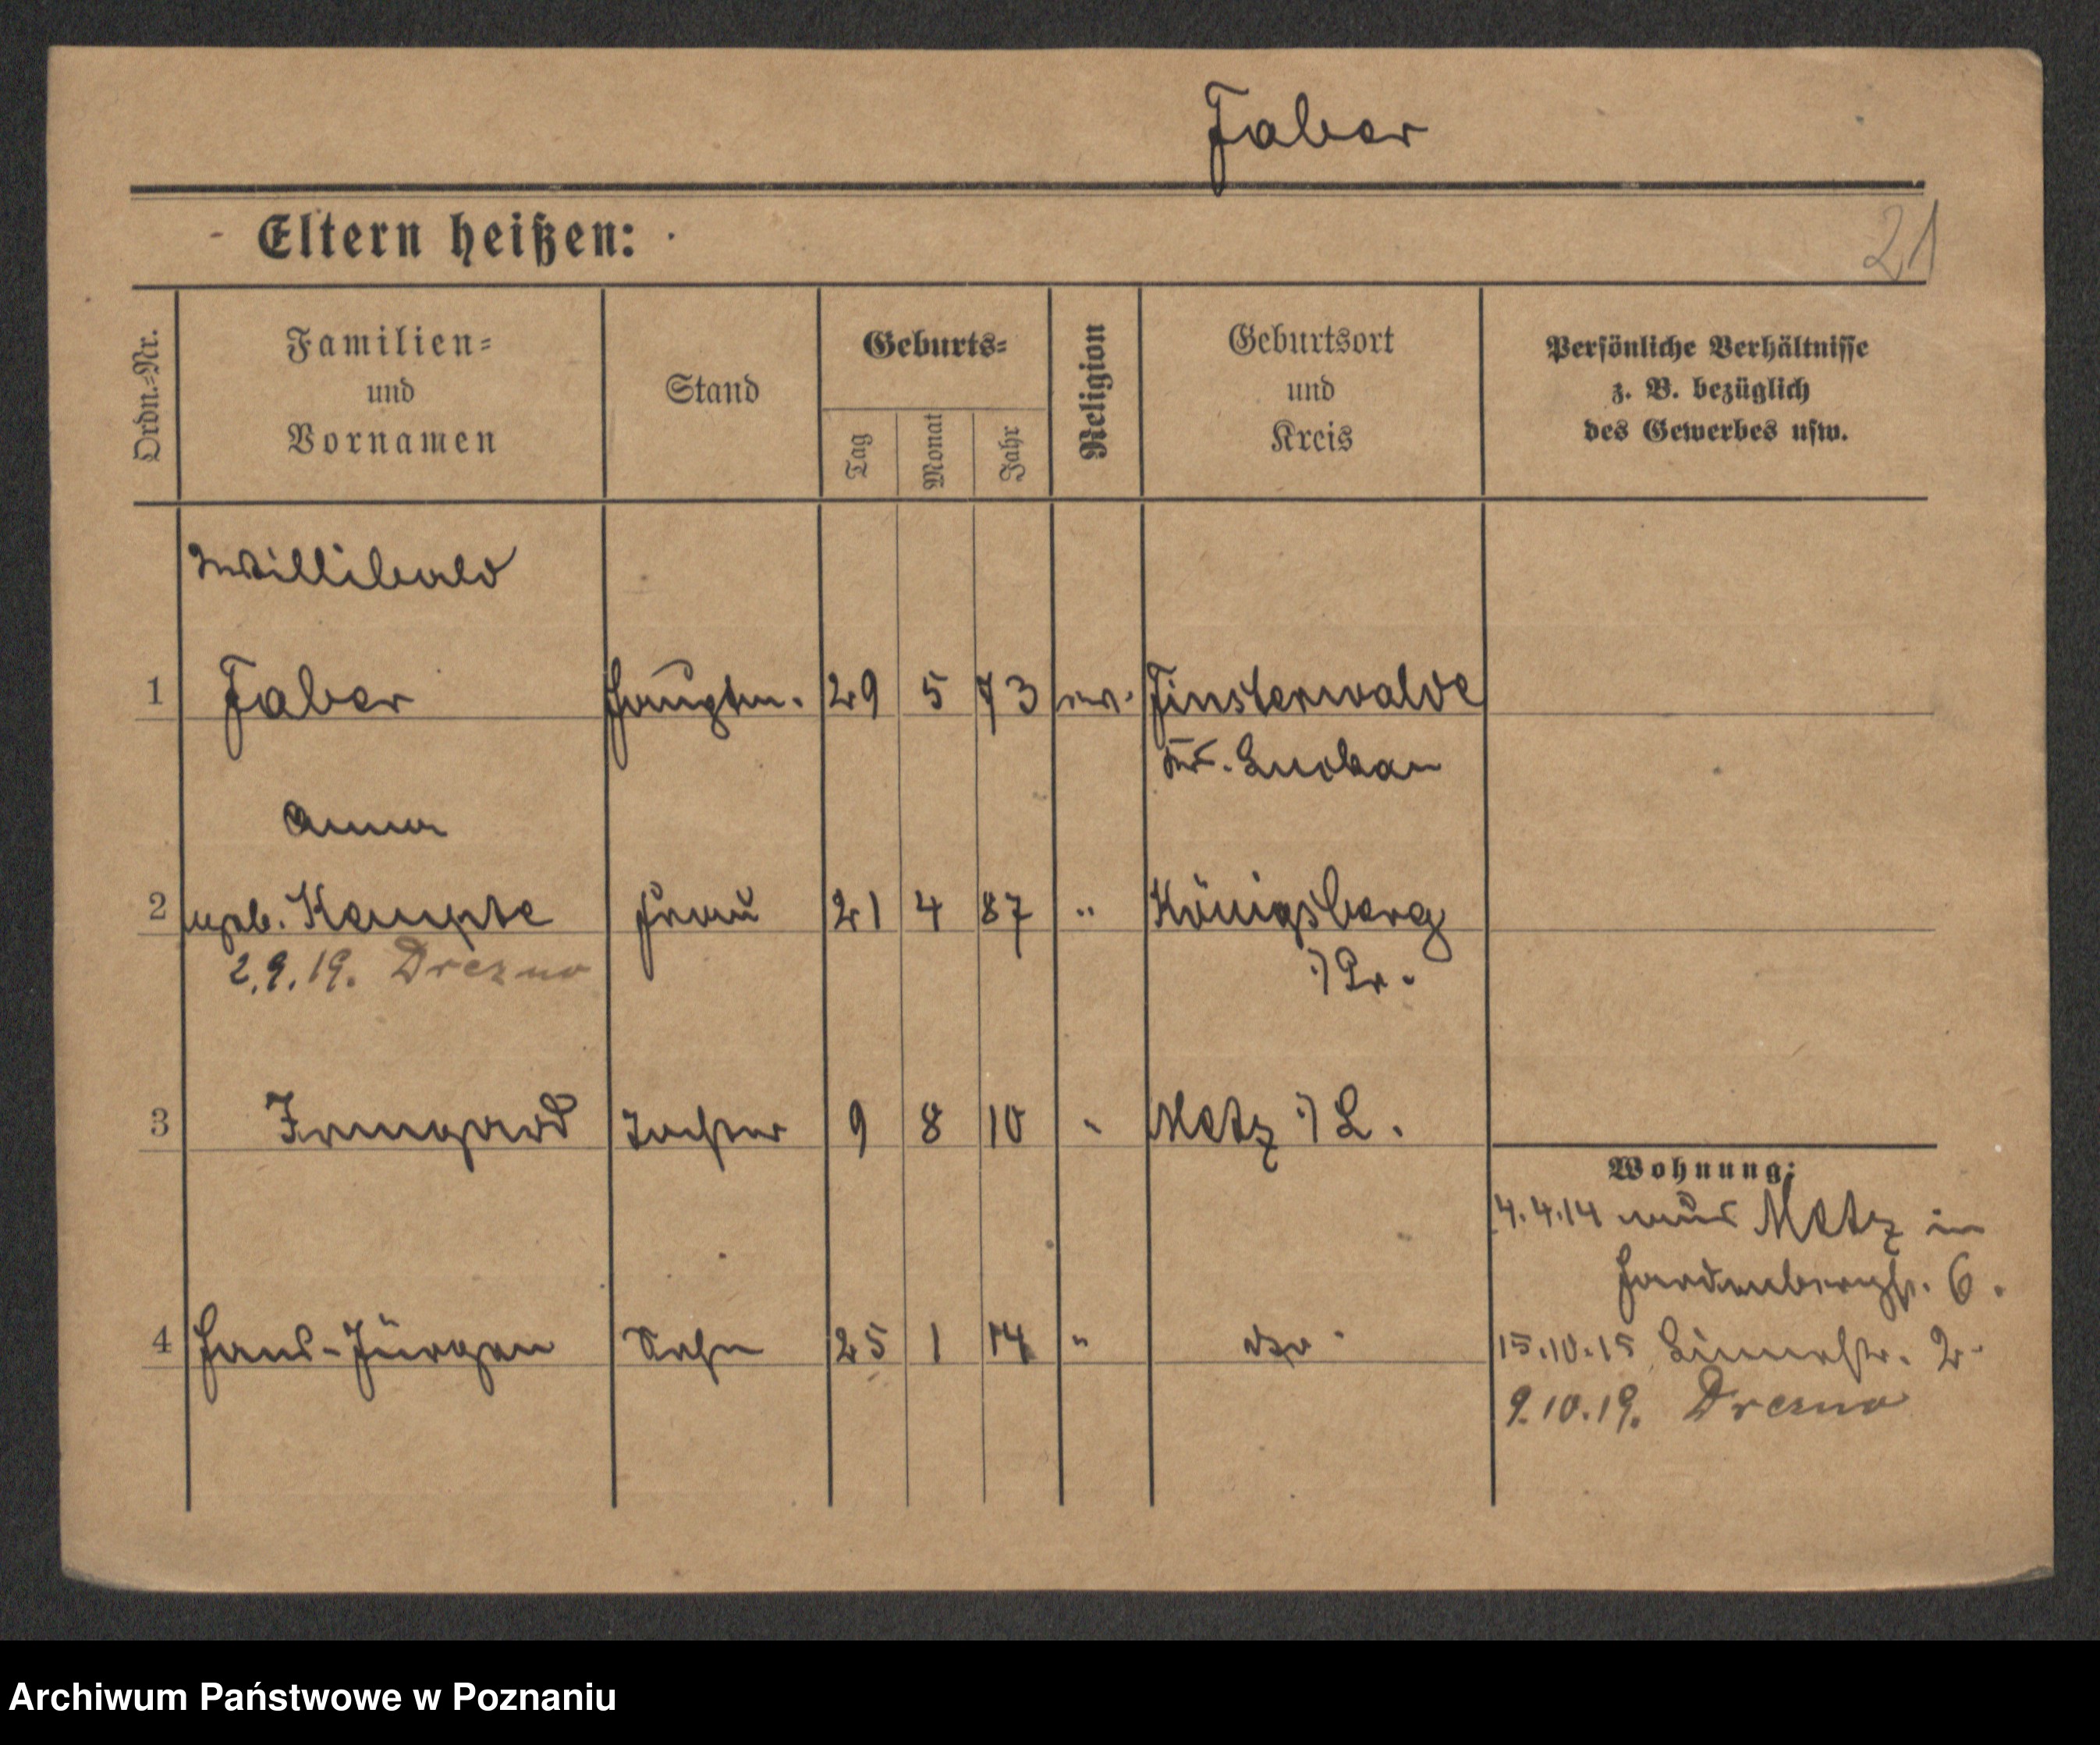 Faber
Eltern heißen:
21
Ordn.=Nr.
Familien=
und
Vornamen
Stand
Geburts=
Tag
Monat
Jahr
Religion
Geburtsort
und
Kreis
Persönliche Verhältnisse
z. B. bezüglich
des Gewerbes usw.
Willibald
1 Faber Hauptm. 29 5 73 ev. Finsterwalde
Kr. Luckau
Anna
2 geb. Frau 21 4 87 " Königsberg
2.9.19. Drezno i/Pr.
3 Irmgard Tochter 9 8 10 " Metz i/L.
Wohnung:
4.4.14 aus Metz in
Hardenbergstr. 6.
4 Hans-Jürgen Sohn 25 1 14 " dto. 15.10.15 2.
9.10.19. Drezno
Archiwum Państwowe w Poznaniu